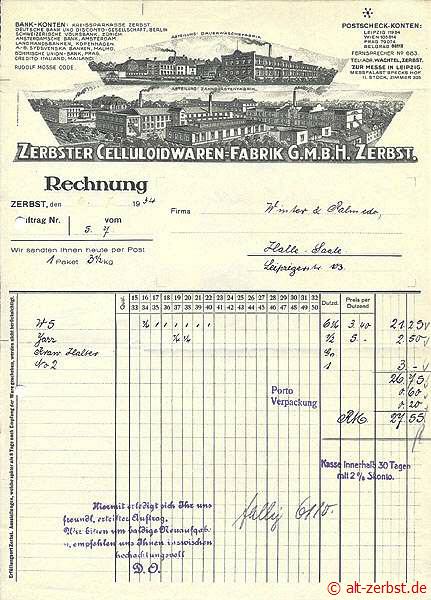 BANK-KONTEN: KREISSPARKASSE ZERBST.
DEUTSCHE BANK UND DISCONTO-GESELLSCHAFT, BERLIN
SCHWEIZERISCHE VOLKSBANK, ZÜRICH
AMSTERDAMSCHE BANK, AMSTERDAM
LANDMANDSBANKEN, KOPENHAGEN
A.-B. SYDSVENSKA BANKEN, MALMÖ,
BÖHMISCHE UNION-BANK, PRAG,
CREDITO ITALIANO, MAILAND.
RUDOLF MOSSE CODE.
POSTSCHECK-KONTEN:
LEIPZIG 11934
PRAG 79074
FERNSPRECHER No 683.
TEL.-ADR. WACHTEL, ZERBST.
ZUR MESSE IN LEIPZIG:
MESSPALAST SPECKS HOF
II. STOCK, ZIMMER 305
ABTEILUNG: DAUERWÄSCHEFABRIK.
ABTEILUNG: ZAHNBÜRSTENFABRIK.
ZERBSTER CELLULOIDWAREN-FABRIK G.M.B.H. ZERBST.
Rechnung
ZERBST, den 1934
Firma Winter &
Auftrag Nr. vom
5. 7
Halle-Saale
Leipzigerstr.
Wir sandten Ihnen heute per Post
1 Paket 3½ kg
Qual. 15 16 17 18 19 20 21 22 23 24 25 26 27 28 29 30 31 32 Dutzd. Preis per Dutzend
33 34 35 36 37 38 39 40 41 42 43 44 45 46 47 48 49 50
W5 3.40 21.25
½ 5.- 2.50
No 2 1 3.-
26.75
Porto 0.60
Verpackung 0.20
RM. 27.55
Kasse innerhalb 30 Tagen
mit 2% Skonto.
Hiermit erledigt sich Ihr uns
freundl. erteilter Auftrag.
Wir bitten um baldige Neuaufgabe
u. empfehlen uns Ihnen inzwischen
hochachtungsvoll
D. O.
fällig 6/10.
Erfüllungsort Zerbst.
© alt-zerbst.de